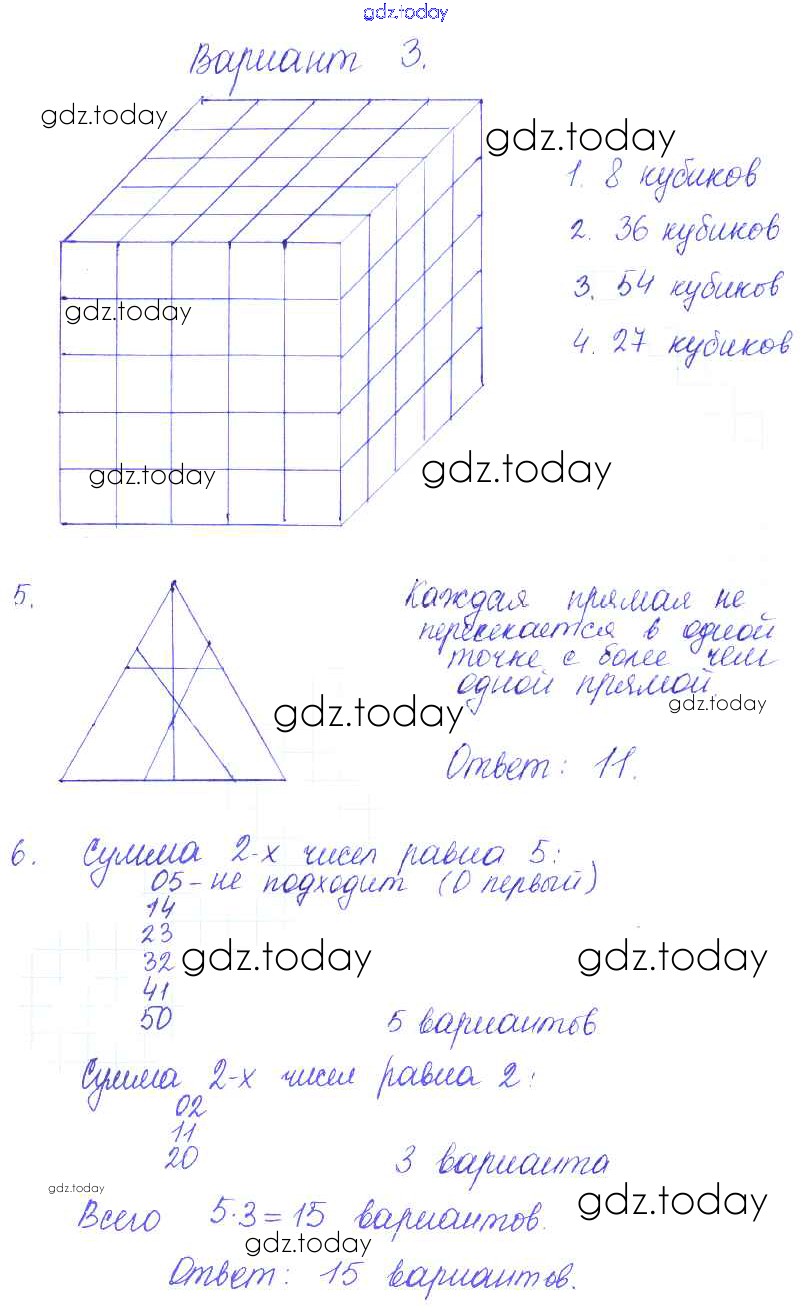 gdz.today
Вариант 3.
gdz.today
gdz.today
1. 8 кубиков
2. 36 кубиков
3. 54 кубиков
4. 27 кубиков
gdz.today
gdz.today
gdz.today
5.
Каждая прямая не
пересекается в одной
точке с более чем
одной прямой.
gdz.today
gdz.today
Ответ: 11.
6. Сумма 2-х чисел равна 5:
05 - не подходит (0 первый)
14
23
32
gdz.today
gdz.today
41
50
5 вариантов
Сумма 2-х чисел равна 2:
02
11
20
3 варианта
gdz.today
gdz.today
Всего 5·3=15 вариантов.
gdz.today
Ответ: 15 вариантов.